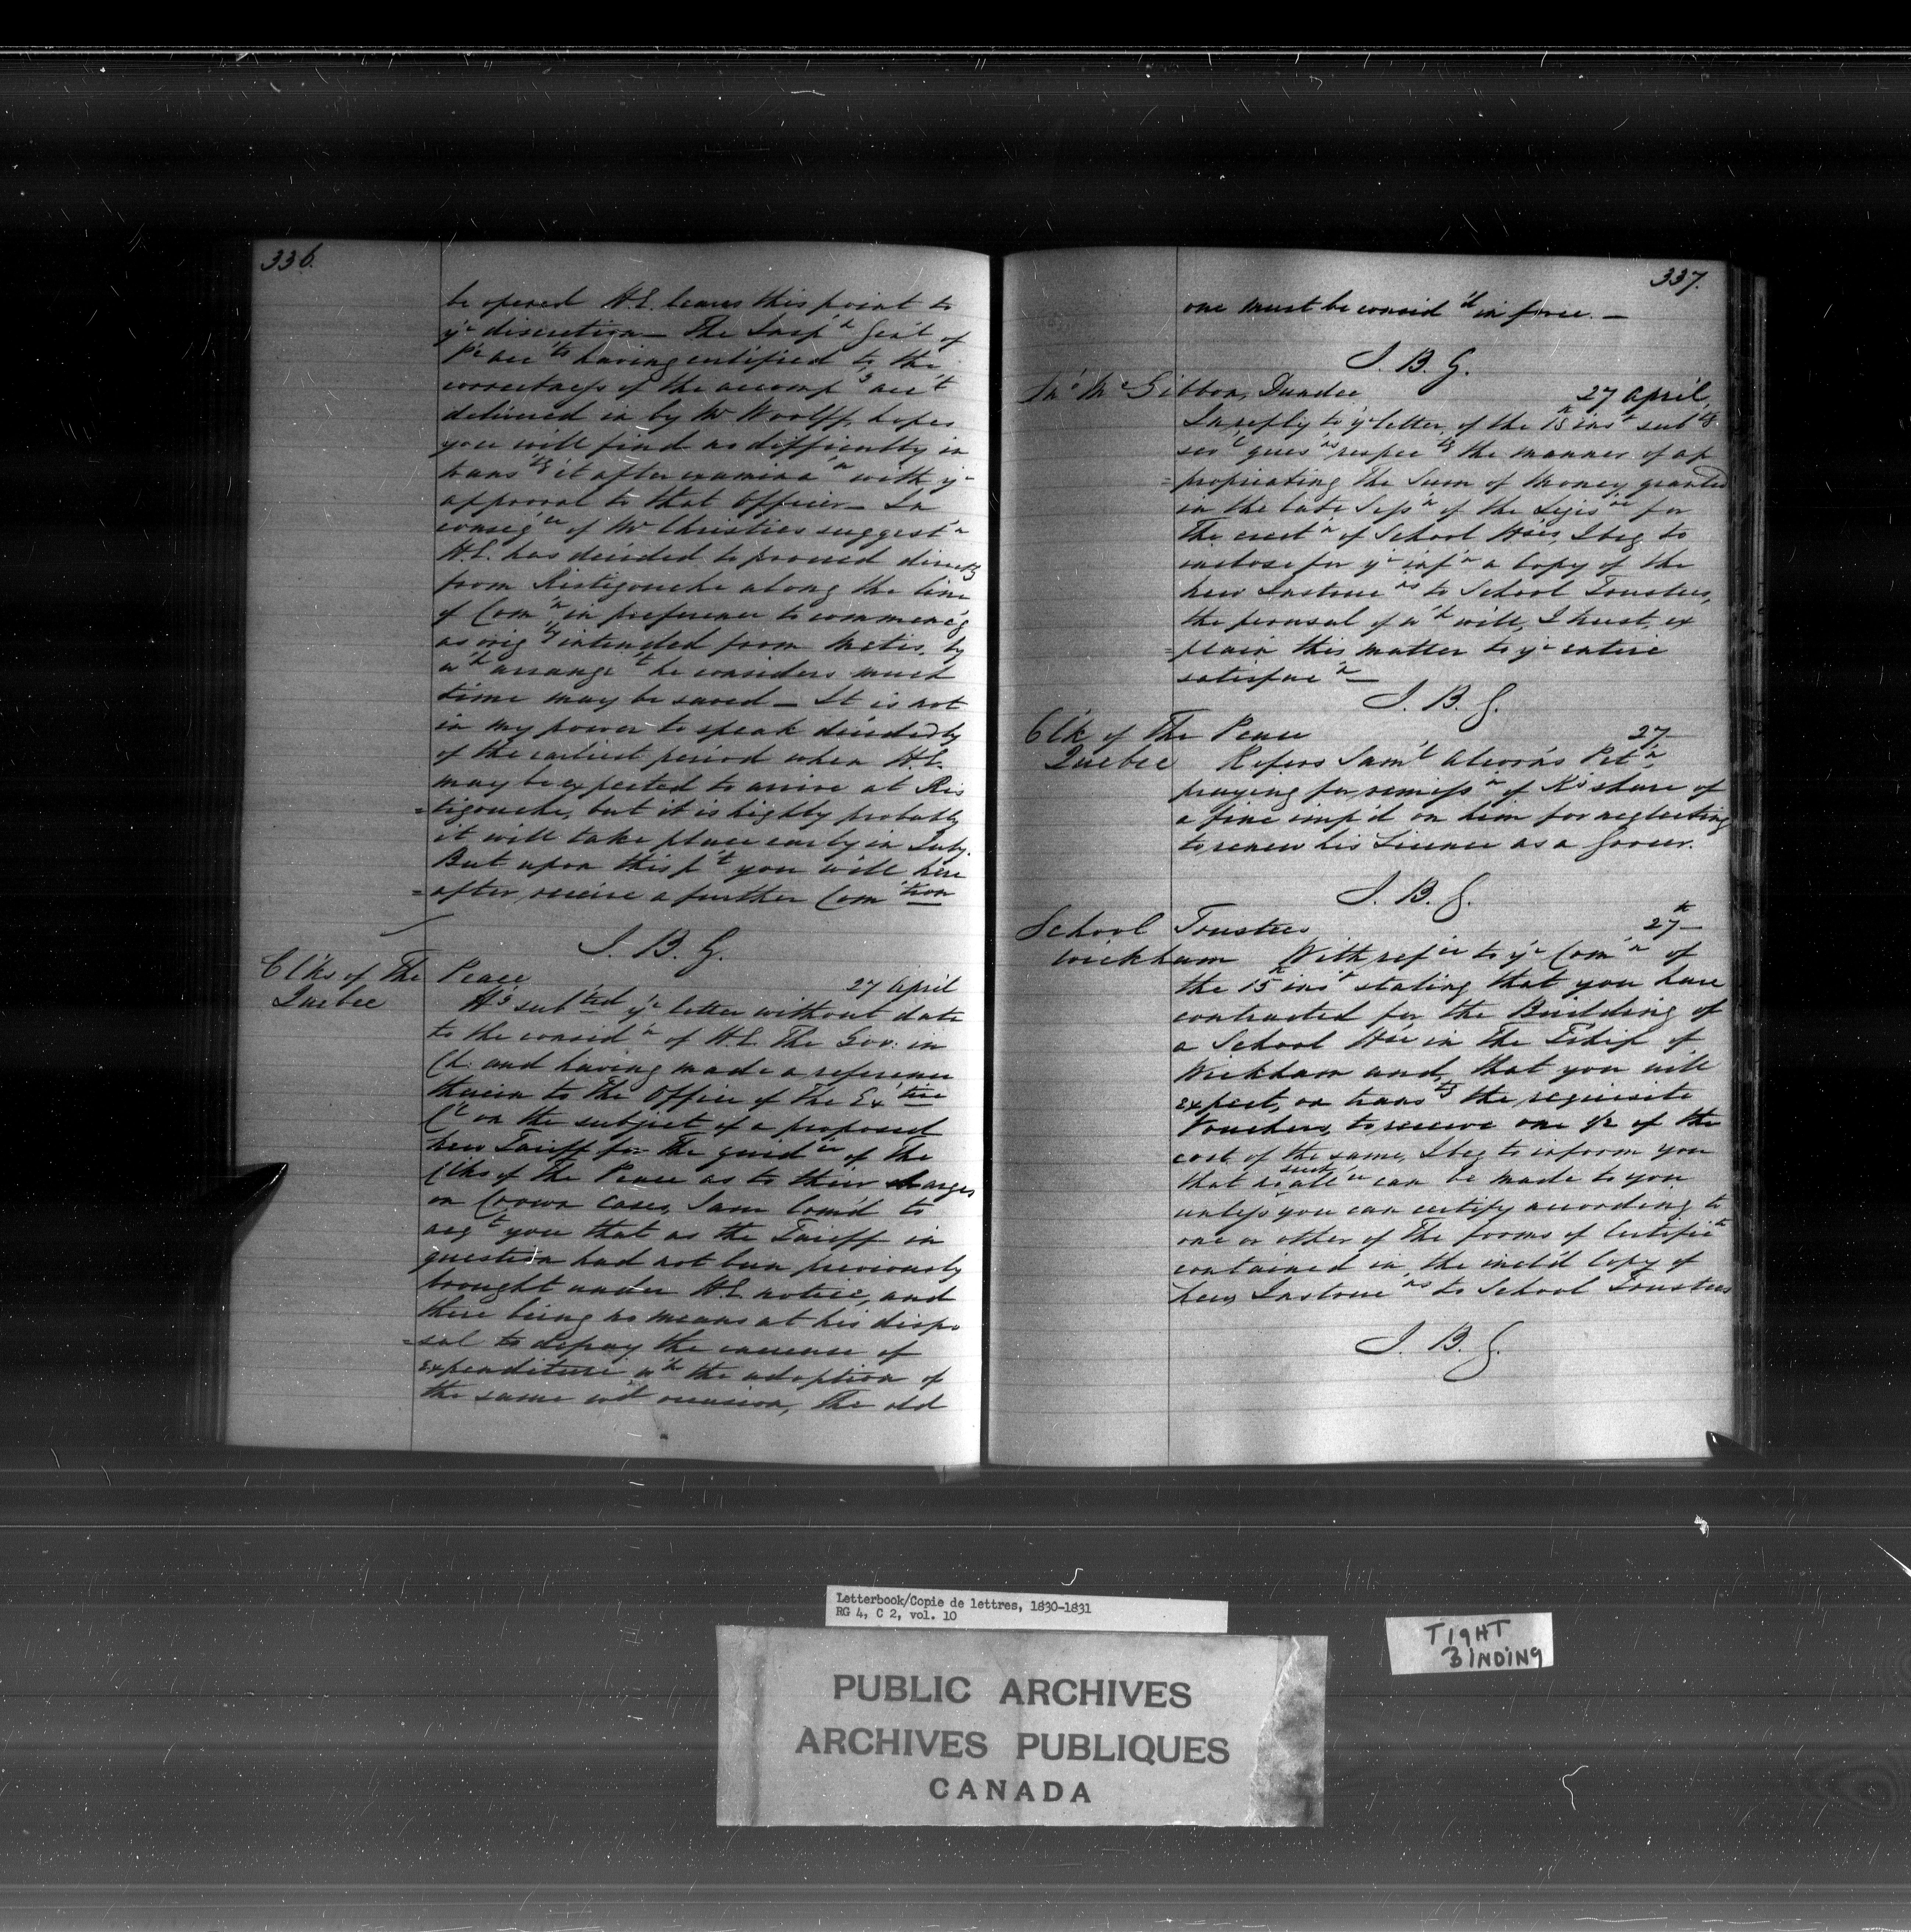 336.
be opened H.E. leaves this point to
yr discretion — The Insp'r Gen'l of
P'c acc'ts having certified to the
correctness of the accomp'g acc't
delivered in by Mr Woolff, hopes
you will find no difficulty in
trans'tg it after examina'n with yr
approval to that Officer — In
conseq'ce of Mr Christies suggest'n
H.E. has decided to proceed direct
from Ristigouche along the line
of Com'n, in preference to commenc'g
as orig'ly intended from Metis, by
w'h arrange't he considers much
time may be saved — It is not
in my power to speak decidedly
of the earliest period when H.E.
may be expected to arrive at Ris
=tigouche, but it is highly probably
it will take place early in July.
But upon this p't you will here
=after receive a further Com'tion
J. B. G.
Clks of The Peace
27 April
Quebec H'g sub'ted yr letter without date
to the consid'n of H.E. The Gov: in
Ch: and having made a reference
therein to the Office of the Ex'tive
C'l on the subject of a proposed
new Tariff for the guid'ce of The
Clks of the Peace as to their charges
on Crown cases, I am com'd to
acq't you that as the Tariff in
question had not been previously
brought under H.E. notice, and
there being no means at his dispo
=sal to defray the increase of
expenditure w'h the adoption of
the same w'd occasion, The old
337.
one must be consid'd in force. —
J. B. G.
Jn'o McGibbon, Dundee 27 April,
In reply to yr letter of the 15th ins't sub'tg
sev'l ques'ns respec'tg the manner of ap
=propriating the Sum of Money granted
in the late Sess'n of the Legis're for
The erect'n of School H'ses, I beg to
inclose for yr inf'n a Copy of the
new Instruc'ns to School Trustees,
the perusal of w'h will, I trust, ex
=plain this matter to yr entire
satisfac'n —
J. B. G.
Clk of The Peace 27
Quebec Refers Sam'l Alcorn's Pet'n
praying for remiss'n of K's share of
a fine imp'd on him for neglecting
to renew his Licence as a Grocer.
J. B. G.
School Trustees 27th —
Wickham With ref'ce to yr Com'n of
the 15th ins't stating that you have
contracted for the Building of
a School H'se in the T'ship of
Wickham and, that you will
expect, on trans'tg the requisite
Vouchers, to receive one 1/2 of the
cost of the same, I beg to inform you
that no such all'ce can be made to you
unless you can certify according to
one or other of the forms of Certific'te
contained in the incl'd Copy of
new Instruc'ns to School Trustees
J. B. G.
Letterbook/Copie de lettres, 1830-1831
RG 4, C 2, vol. 10
TIGHT
BINDING
PUBLIC ARCHIVES
ARCHIVES PUBLIQUES
CANADA